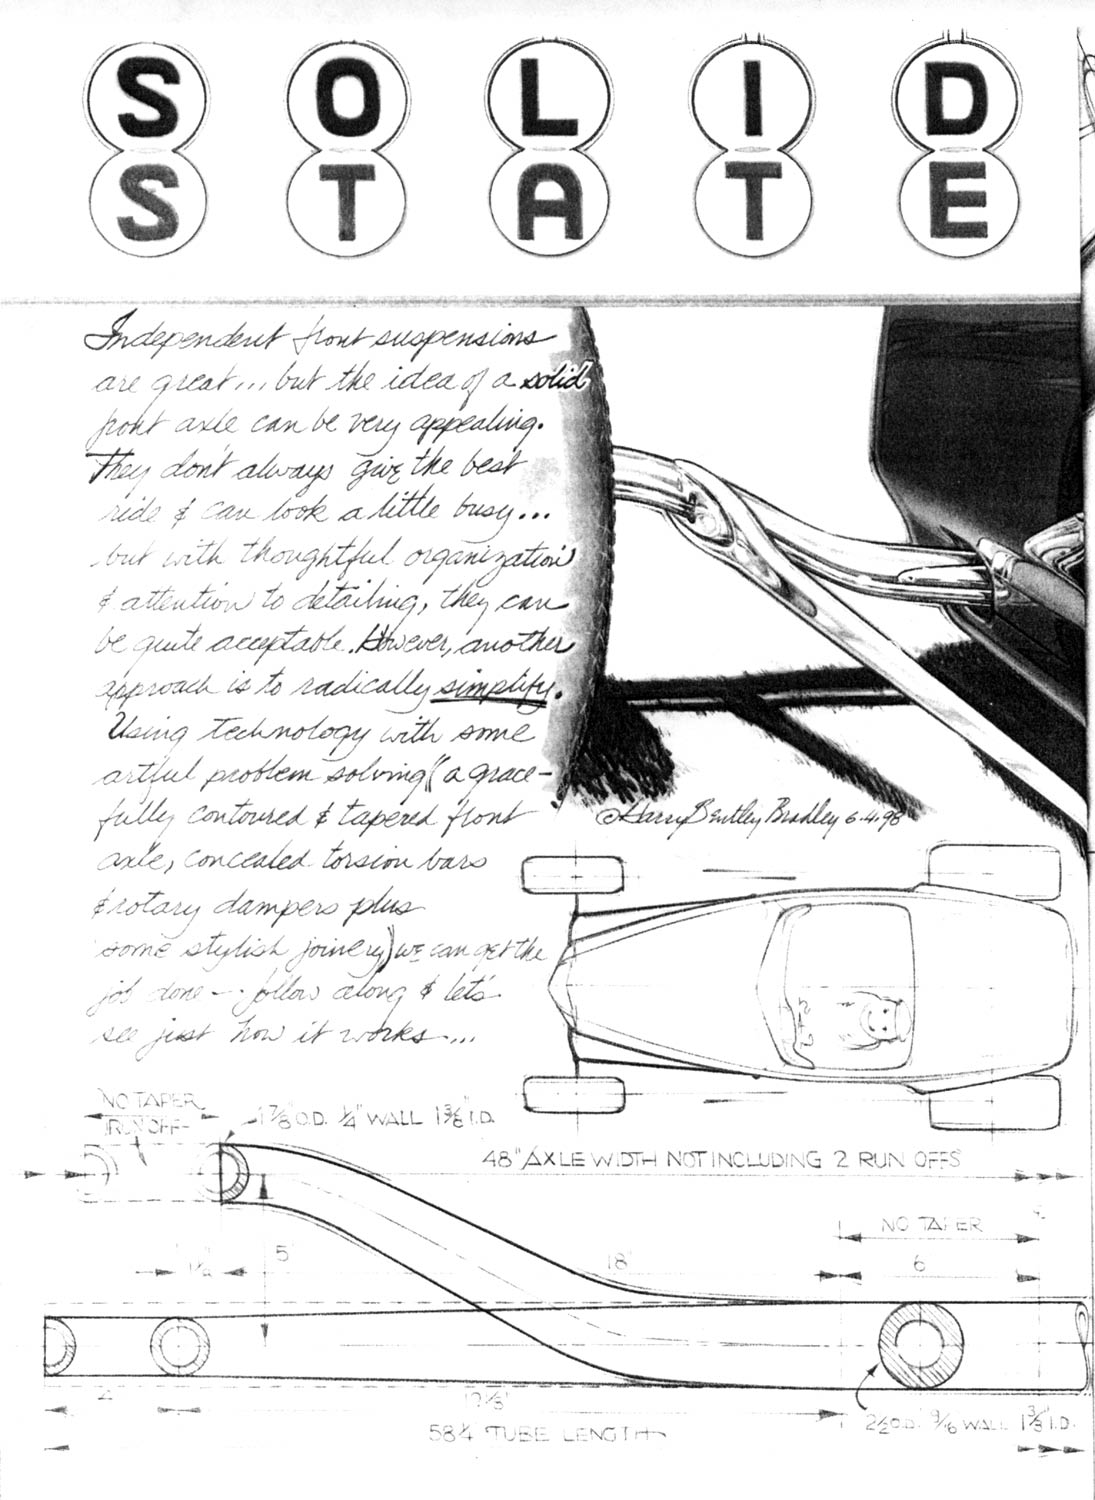 SOLID
STATE
Independent front suspensions
are great... but the idea of a solid
front axle can be very appealing.
They don't always give the best
ride & can look a little busy...
but with thoughtful organization
& attention to detailing, they can
be quite acceptable. However, another
approach is to radically simplify.
Using technology with some
artful problem solving (a grace-
fully contoured & tapered front
axle, concealed torsion bars
& rotary dampers plus
some stylish joinery) we can get the
job done -- follow along & let's
see just how it works...
©Harry Bentley Bradley 6.4.98
NO TAPER
RUN OFF
1 7/8 O.D. 1/4" WALL 1 3/8" I.D.
48" AXLE WIDTH NOT INCLUDING 2 RUN OFFS
NO TAPER
5"
18"
6
4
58 1/4 TUBE LENGTH
2 1/2 O.D. 9/16 WALL 1 3/8" I.D.